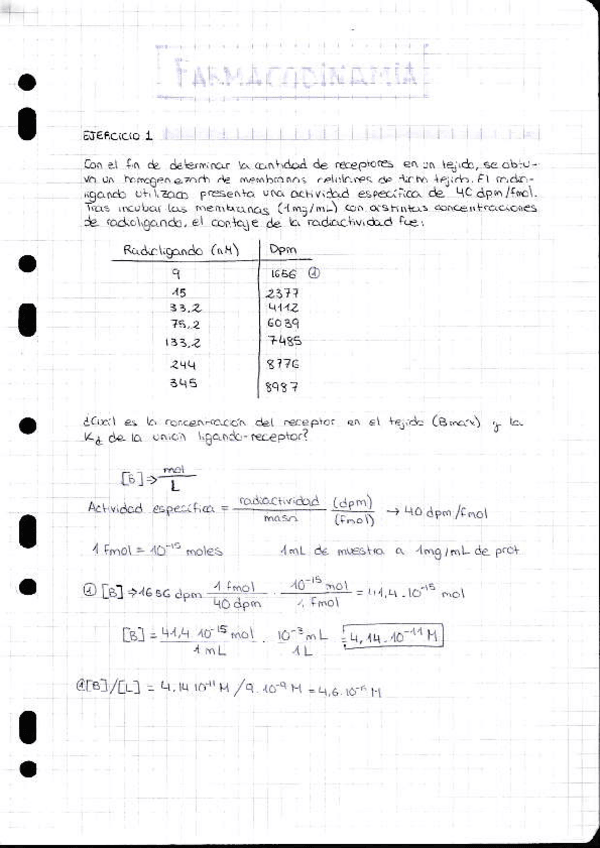 FARMACODINAMIA
EJERCICIO 1
Con el fin de determinar la cantidad de receptores en un tejido, se obtu-
vo un homogenizado de membranas celulares de dicho tejido. El radio-
ligando utilizado presenta una actividad específica de 40 dpm/fmol.
Tras incubar las membranas (1mg/mL) con distintas concentraciones
de radioligando, el contaje de la radiactividad fue:
Radioligando (nM) Dpm
9 1656 ①
15 2377
33,2 4112
75,2 6039
133,2 7485
244 8776
345 8987
¿Cuál es la concentración del receptor en el tejido (Bmax) y la
Kd de la unión ligando-receptor?
[B] → mol / L
Actividad específica = radiactividad (dpm) / masa (fmol) → 40 dpm/fmol
1 fmol = 10⁻¹⁵ moles 1mL de muestra a 1mg/mL de prot
① [B] ⇒ 1656 dpm 1 fmol / 40 dpm · 10⁻¹⁵ mol / 1 fmol = 41,4 · 10⁻¹⁵ mol
[B] = 41,4 10⁻¹⁵ mol / 1 mL · 10⁻³ mL / 1 L = 4,14 · 10⁻¹¹ M
① [B]/[L] = 4.14 10⁻¹¹ M / 9 · 10⁻⁹ M = 4,6 · 10⁻³ M